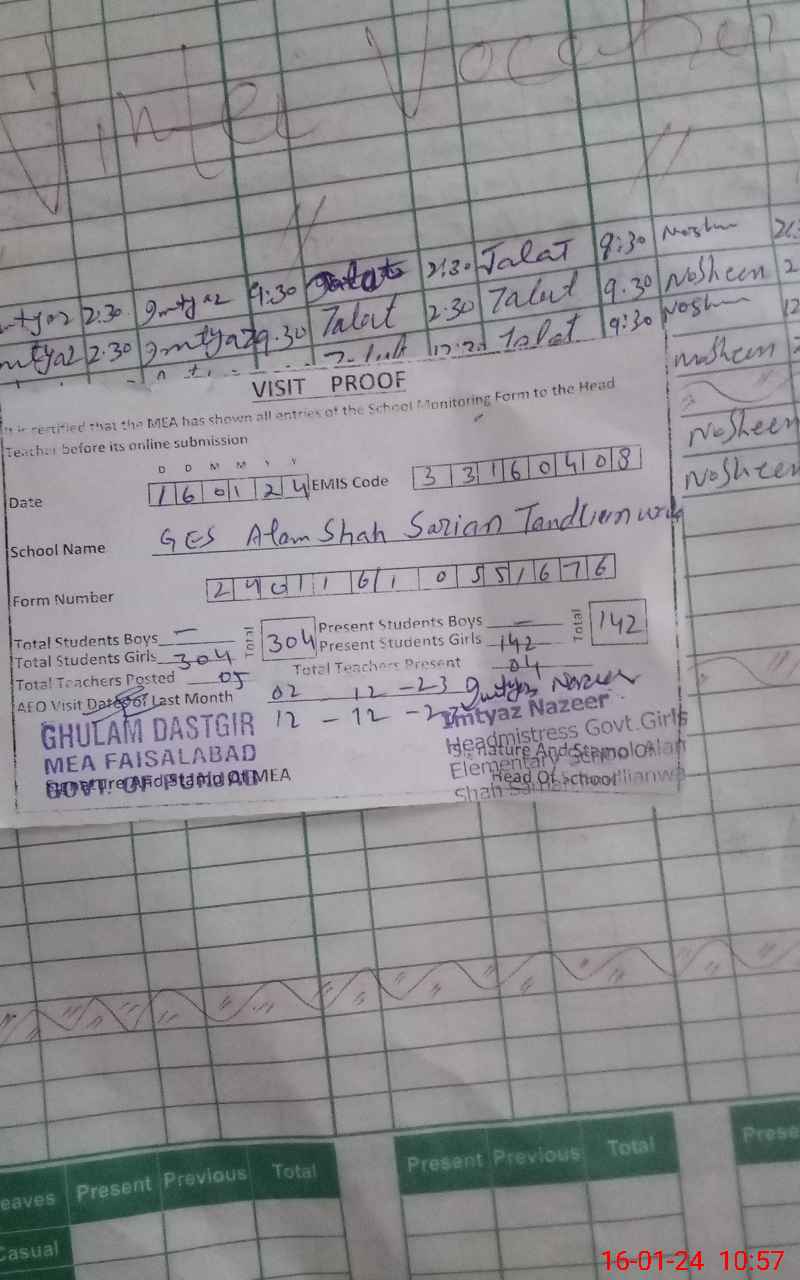 Vinter Vocation
2:30 Imtyaz 9:30 Talat 2:30 Talat 9:30 Noshen
Imtyaz 2:30 Imtyaz 9.30 Talat 2.30 Talat 9.30 Nosheen
12:30 Talat 9:30 Noshen
Nosheen
Nosheen
Nosheen
VISIT PROOF
It is certified that the MEA has shown all entries of the School Monitoring Form to the Head
Teacher before its online submission
D D M M Y Y
Date 160124 EMIS Code 33160408
School Name GES Alam Shah Sarian Tandlianwala
Form Number 24011610551676
Total Students Boys — Total 304 Present Students Boys — Total 142
Total Students Girls 304 Present Students Girls 142
Total Teachers Posted 05 Total Teachers Present 04
AEO Visit Dates of Last Month 02 12 -23 Imtyaz Nazeer
12 - 12 - 23
GHULAM DASTGIR
MEA FAISALABAD
GOVT. OF PUNJAB
Signature And Stamp Of MEA
Imtyaz Nazeer
Headmistress Govt.Girls
Signature And Stamp Of
Elementary School Alam
Head Of School
Shah
eaves Present Previous Total Present Previous Total Prese
Casual
16-01-24 10:57